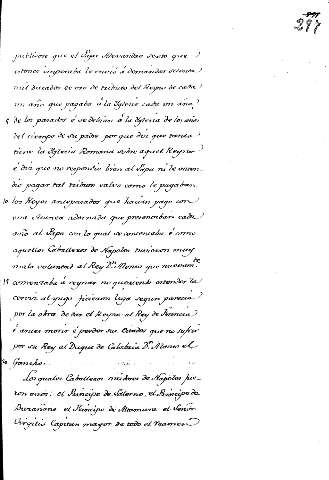 297
publicose que el Papa Alexandro sexto que
entonce imperaba le envió á demandar setenta
mil ducados de oro de tributo del Reyno de cada
un año que pagaba á la Yglesia cada un año
5 de los pasados é se debian á la Yglesia de los años
del tiempo de su padre por que diz que
tiene la Yglesia Romana sobre aquel Reyno
é diz que no respondió bien al Papa ni de
pagar tal tributo salvo como le pagaban
10 los Reyes antepasados que hacian pago con
una Acanea adornada que presentaban cada
año al Papa con lo qual se contentaba é como
aquellos Caballeros de Napoles tuviesen muy
mala voluntad al Rey Dn. Alonso que nuevamte.
15 comenzaba á reynar no queriendo
cerviz al yugo ficieron liga segun parecia
por la obra de dar el Reyno al Rey de Francia
é antes morir é perder sus Estados que no sufrir
por su Rey al Duque de Calabria Dn. Alonso el
20
Los quales Caballeros de Napoles fue-
ron estos: el Principe de Salerno, el Principe de
el Principe de Altamura el Señor
Virgilio Capitan mayor de todo el